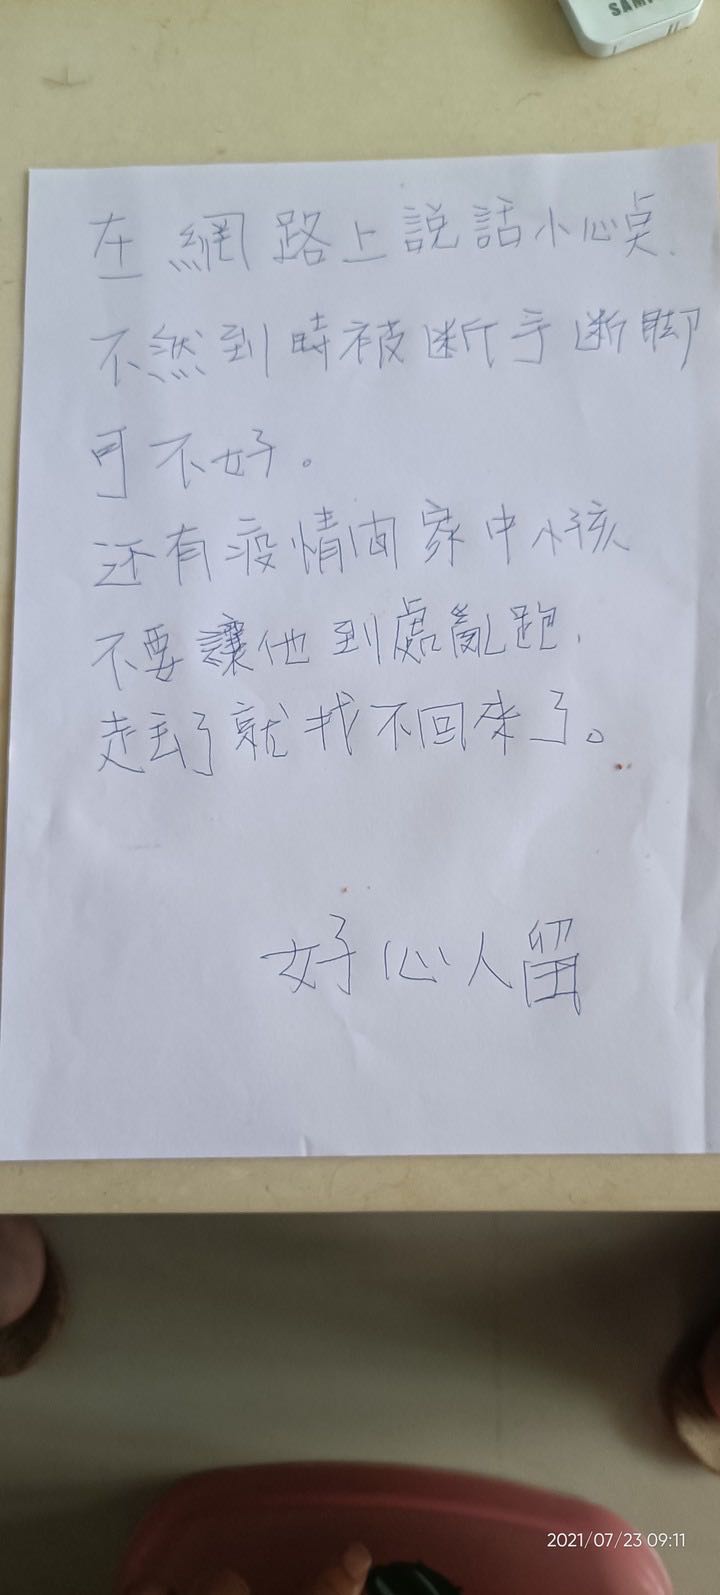 SAM
在網路上說話小心桌.
不然到時被断手断脚
可不好。
还有疫情间家中小孩
不要讓他到處亂跑.
走丟了就找不回來了。
好心人留
2021/07/23 09:11